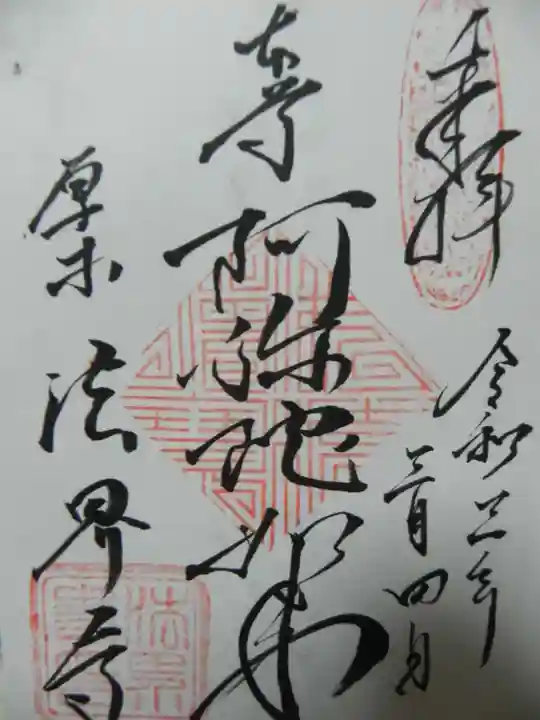 奉拝
令和三年
三月四日
本尊 阿弥陀如来
厚木 法界寺